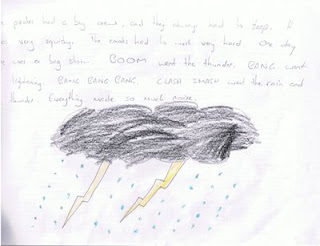 pirates had a big crew, and they had to
was very squishy. The pirates had to work very hard. One day
was a big storm. BOOM went the thunder. BANG went
lightening. BANG BANG BANG. CLASH SMASH went the rain and
thunder. Everything made so much noise.